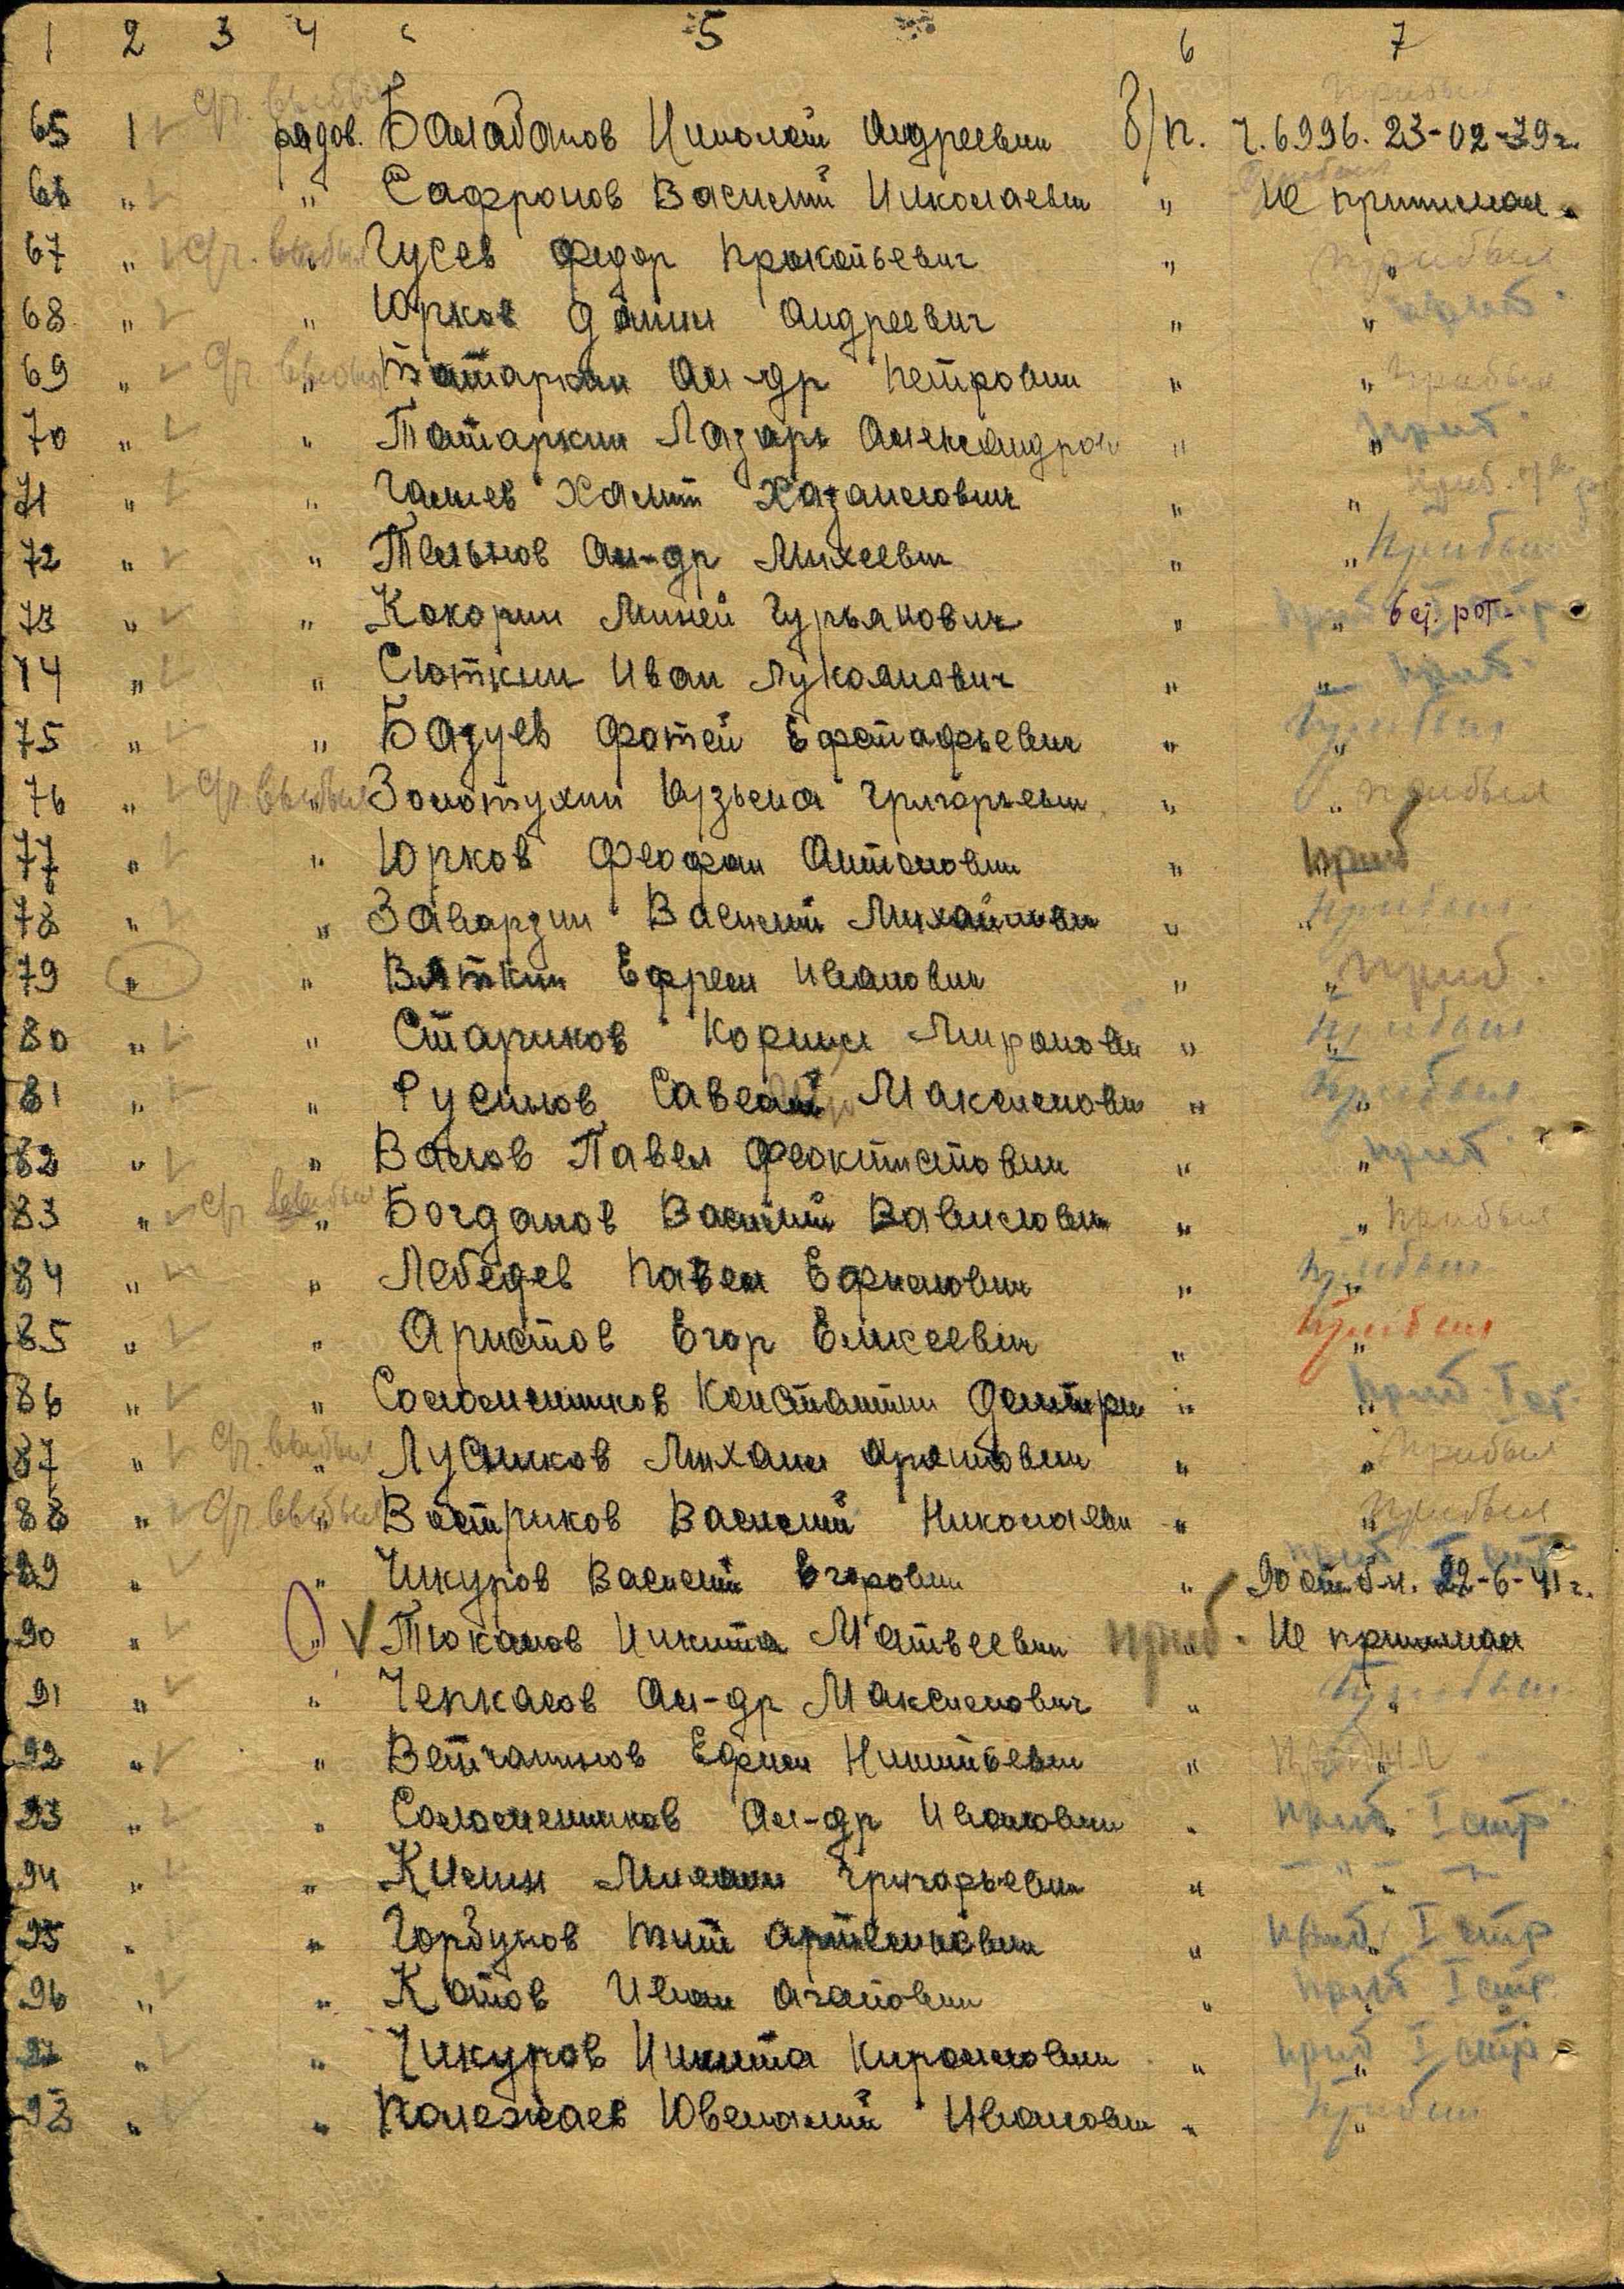 1 2 3 4 5 6 7
65 1 рядов. Балабанов Николай Андреевич б/п. ч.6996. 23-02-39г.
66 " " Сафронов Василий Николаевич " Не принимал.
67 " ср. выбыл " Гусев Федор Прокопьевич " " прибыл
68 " " Юрков Данил Андреевич " " приб
69 " ср. выбыл " Татаркин Ал-др Петрович " " прибыл
70 " " Татаркин Лазарь Александров " " приб
71 " " Галиев Хамит " "
72 " " Тельнов Ал-др Михеевич " " прибыл
73 " " Кокорин Миней Гурьянович " "
74 " " Сюткин Иван Лукоянович " " приб
75 " " Базуев Фотей Ефстафьевич " " прибыл
76 " ср. выбыл " Золотухин Кузьма Григорьевич " " прибыл
77 " " Юрков Феофан Антонович " " приб
78 " " Заварзин Василий Михайлович " " прибыл
79 " " Вяткин Ефрем Иванович " " приб.
80 " " Стариков Корнил Миронович " " прибыл
81 " " Русинов Савелий Максимович " " прибыл
82 " " Валов Павел Феоктистович " " приб
83 " ср. выбыл " Богданов Василий Вавилович " " прибыл
84 " " Лебедев Павел Ефимович " " прибыл
85 " " Аристов Егор Еликеевич " " прибыл
86 " " Соломенников Константин Дмитри " " приб.
87 " ср. выбыл " Лусников Михаил " " прибыл
88 " ср. выбыл " Востриков Василий Николаевич " " прибыл
89 " " Чикуров Василий Егорович " 22-6-41г.
90 " " Тюкалов Никита Матвеевич приб " Не принимал
91 " " Черкасов Ал-др Максимович " " прибыл
92 " " Ветчанинов Ефим " " прибыл
93 " " Соломенников Ал-др Иванович " приб I стр
94 " " Килин Михаил Григорьевич " "
95 " " Горбунов Тит " " приб I стр
96 " " Катов Иван Агапович " " приб I стр
97 " " Чикуров Никита " " приб I стр
98 " " Полежаев Ювеналий Иванович " " прибыл